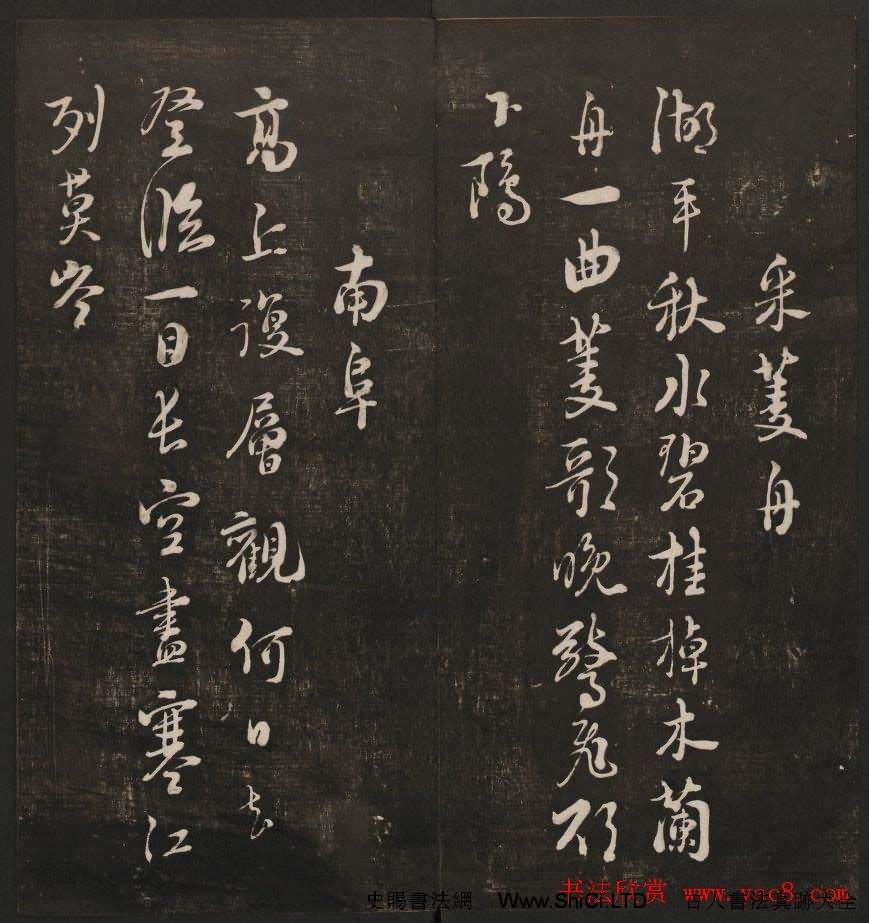 采菱舟
湖平秋水碧桂棹木蘭
舟一曲菱歌晚驚飛欲
下鷗
南阜
高丘復層觀何日去
登臨一目長空盡寒江
列莫岑
书法欣赏 www.yac8.com
史賜書法網 Www.ShiCi.LTD 古人書法真跡大全